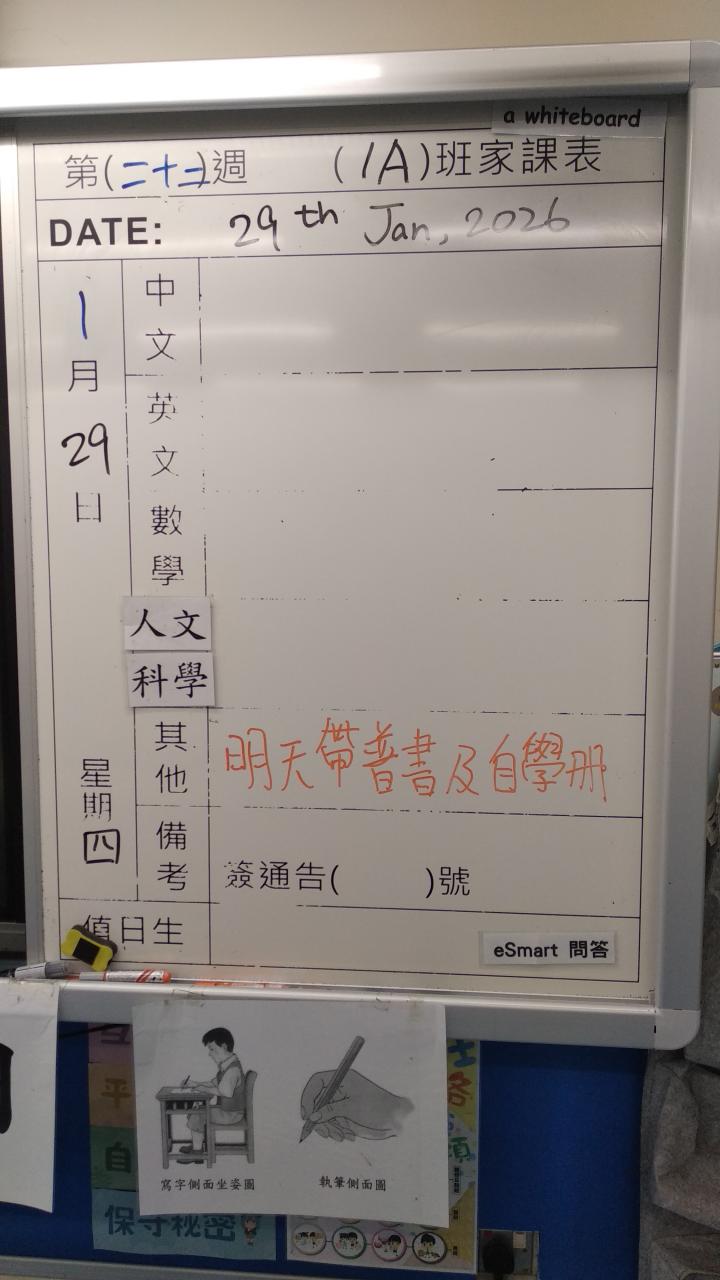 a whiteboard
第(二十二)週 (1A)班家課表
DATE: 29th Jan, 2026
1月29日
星期四
中文
英文
數學
人文
科學
其他 明天帶普書及自學册
備考 簽通告( )號
值日生
eSmart 問答
寫字側面坐姿圖 執筆側面圖
平
自
保守秘密